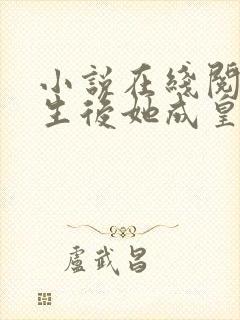 小說在綫閱
生後她成皇
盧武昌